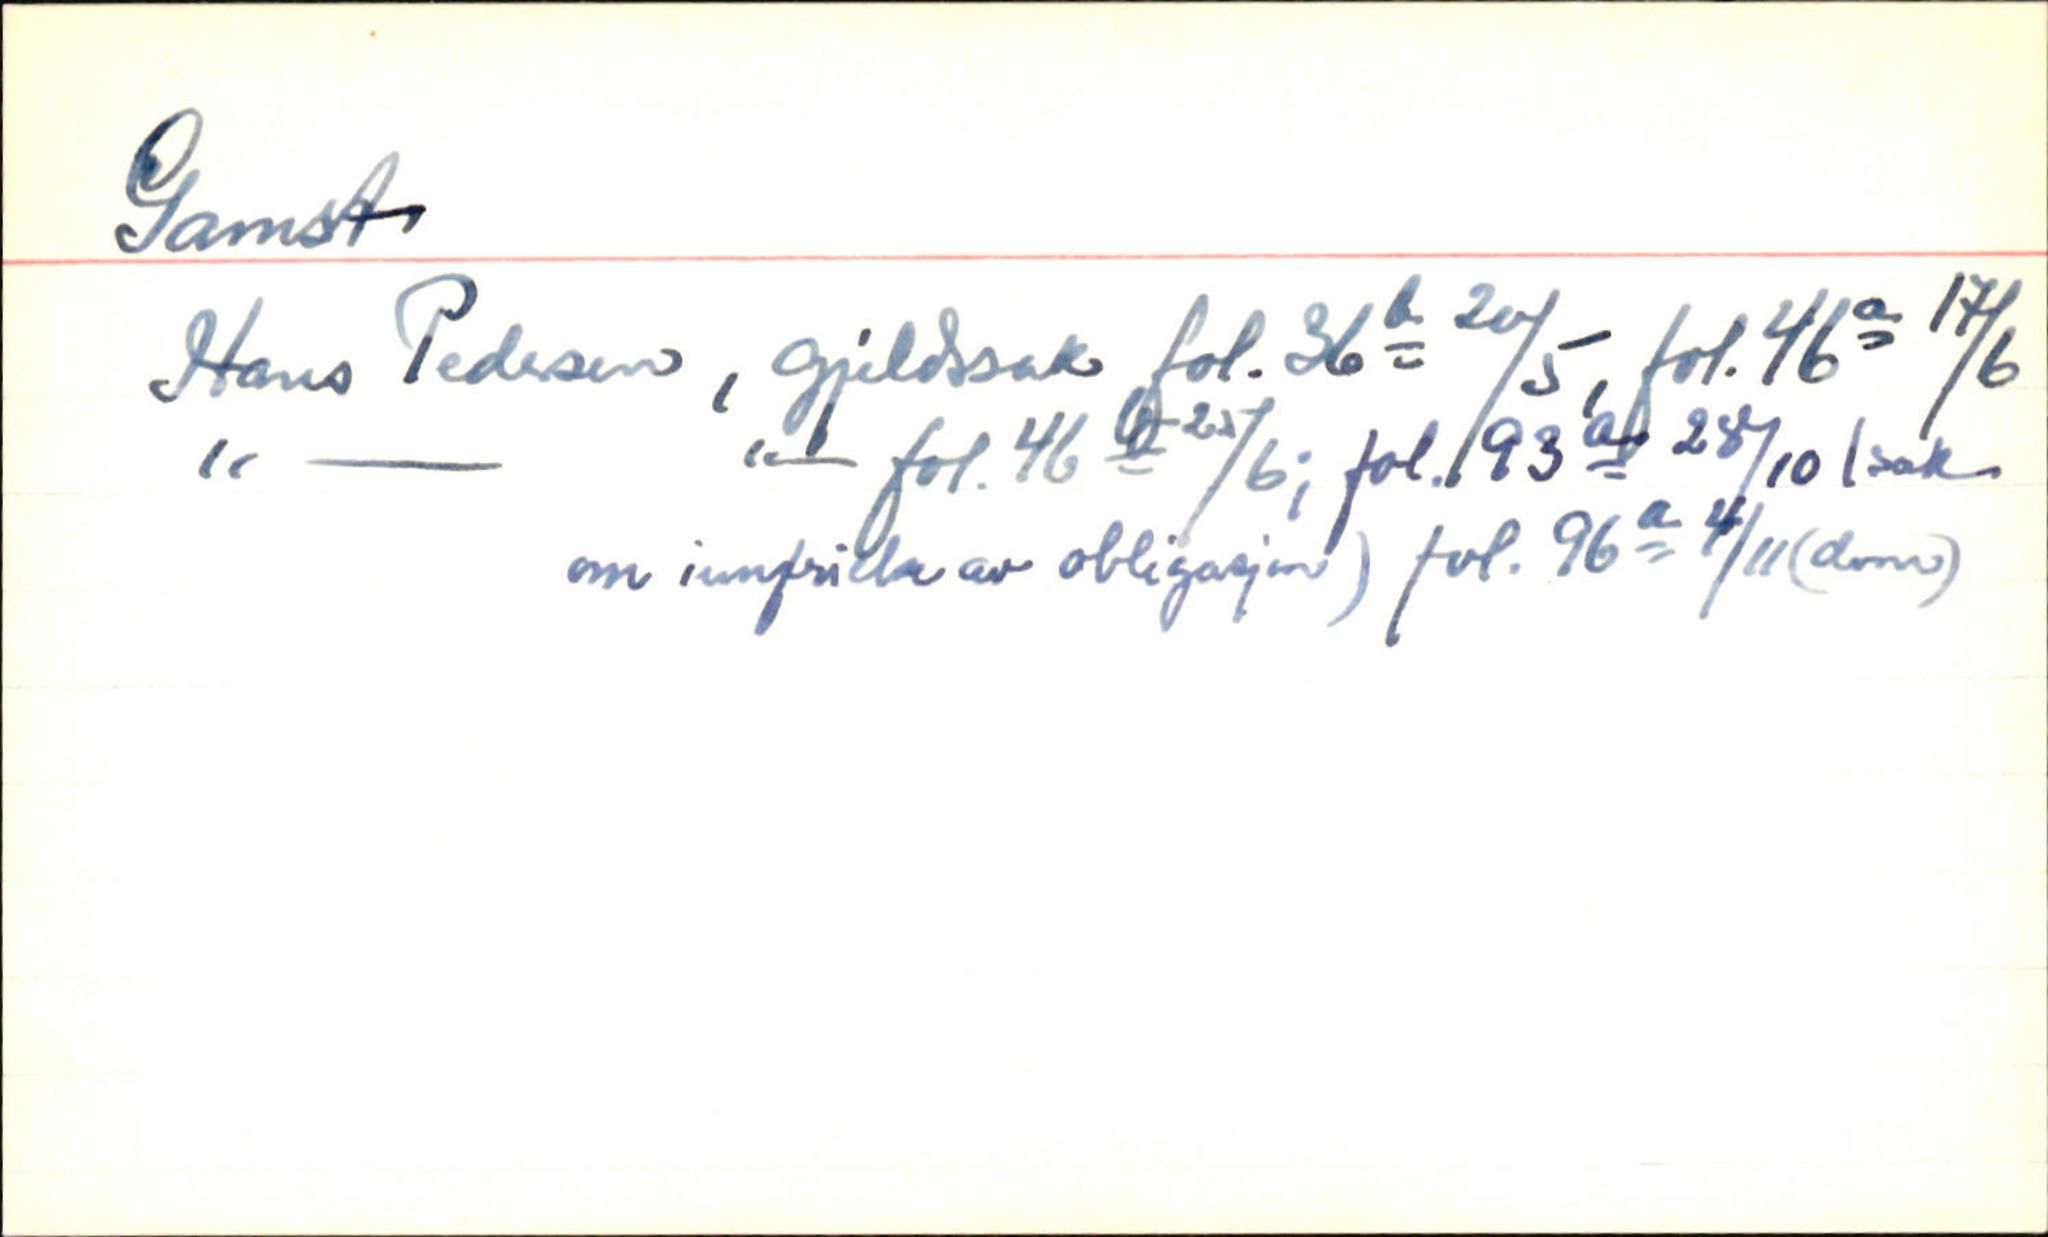 Gamst
Hans Pedersen, gjeldssak fol. 36b 20/5, fol. 46a 17/6
" — " — fol. 46b 25/6; fol. 93a 28/10 (sak
om innfrielse av obligasjon) fol. 96a 4/11 (dom)